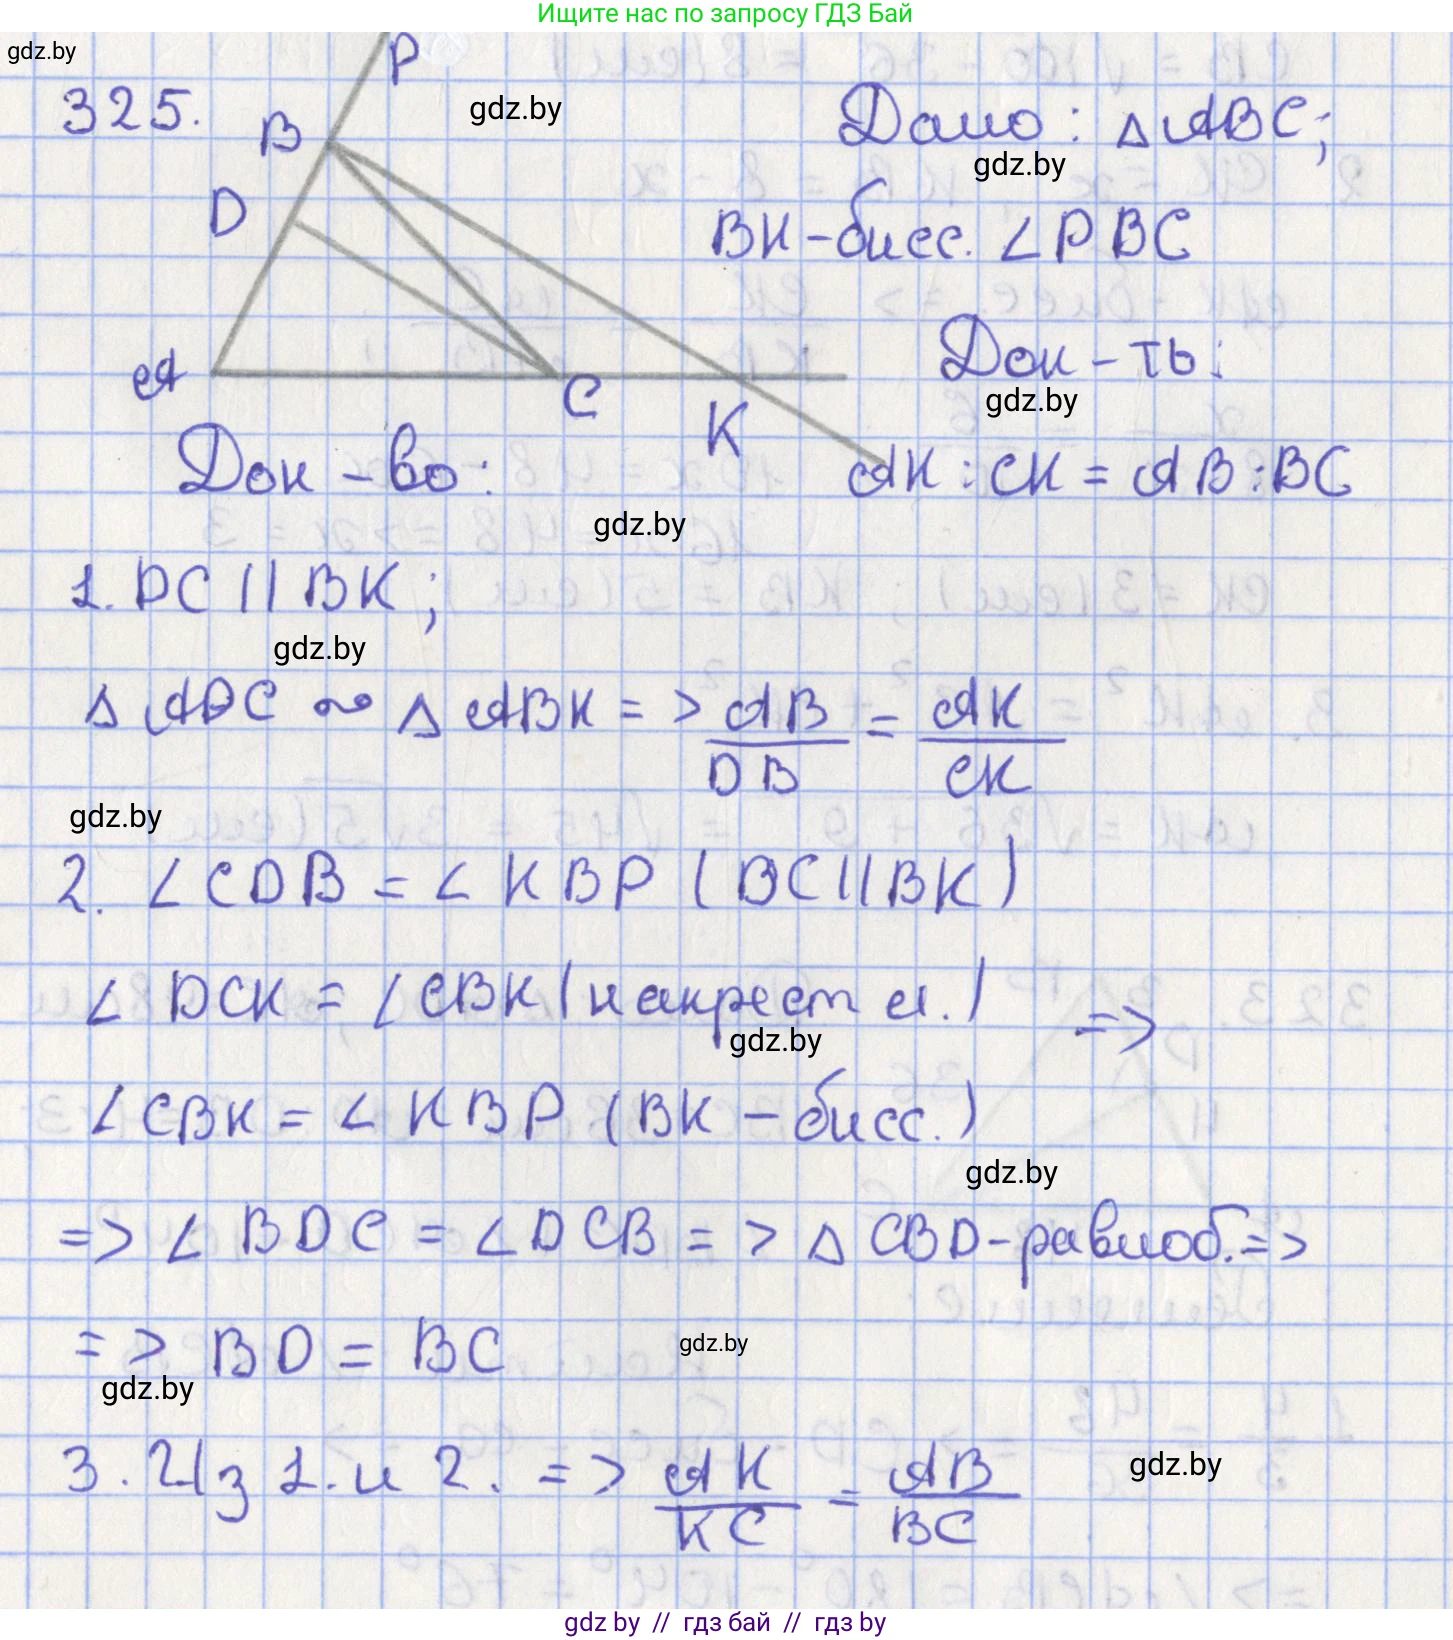 Ищите нас по запросу ГДЗ Бай
gdz.by
P
325.
B
gdz.by
Дано: △ABC;
gdz.by
D
BK - бисс. ∠PBC
Док-ть:
A
C
gdz.by
K
AK : CK = AB : BC
Док-во:
gdz.by
1. DC || BK;
gdz.by
△ADC ~ △ABK => AB/DB = AK/CK
gdz.by
2. ∠CDB = ∠KBP (DC || BK)
∠DCK = ∠CBK (накрест л.) =>
gdz.by
∠CBK = ∠KBP (BK - бисс.)
gdz.by
=> ∠BDC = ∠DCB => △CBD - равноб. =>
=> BD = BC
gdz.by
gdz.by
3. Из 1. и 2. => AK/KC = AB/BC
gdz.by
gdz by // гдз бай // gdz by